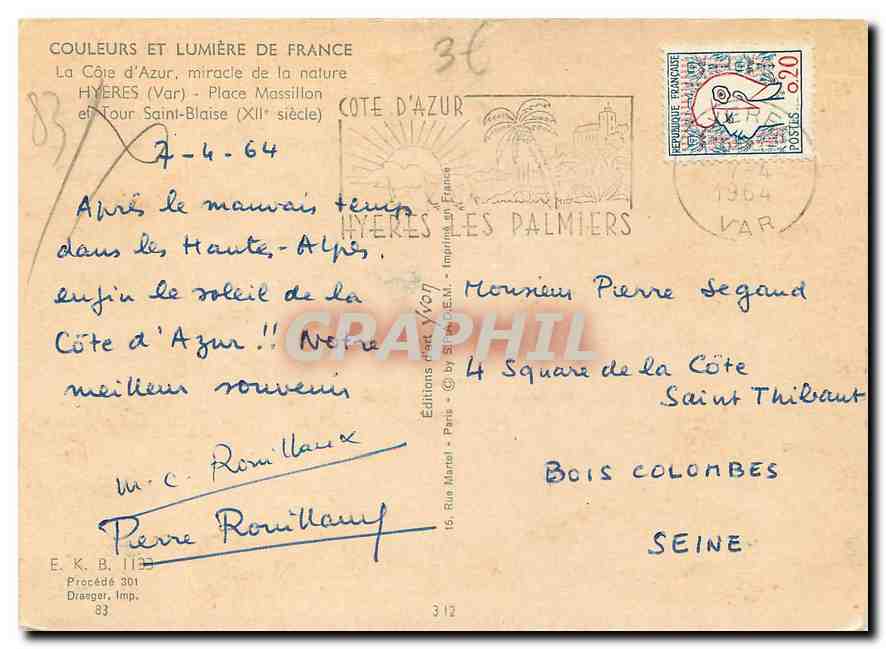 COULEURS ET LUMIÈRE DE FRANCE
La Côte d'Azur, miracle de la nature
HYERES (Var) - Place Massillon
et Tour Saint-Blaise (XIIe siècle)
83
3€
7-4-64
Après le mauvais temps
dans les Hautes-Alpes.
enfin le soleil de la
Côte d'Azur !! Notre
meilleur souvenir
m.c. Rouillaux
Pierre Rouillaux
E. K. B. 1133
Procédé 301
Draeger, Imp.
83
312
COTE D'AZUR
HYERES LES PALMIERS
REPUBLIQUE FRANÇAISE
0,20
POSTES
HYERES
7-4
1964
VAR
Editions d'art Yvon
16, Rue Martel - Paris - © by S.P.A.D.E.M. - Imprimé en France
Monsieur Pierre Segaud
4 Square de la Côte
Saint Thibaut
BOIS COLOMBES
SEINE
CPAPHIL